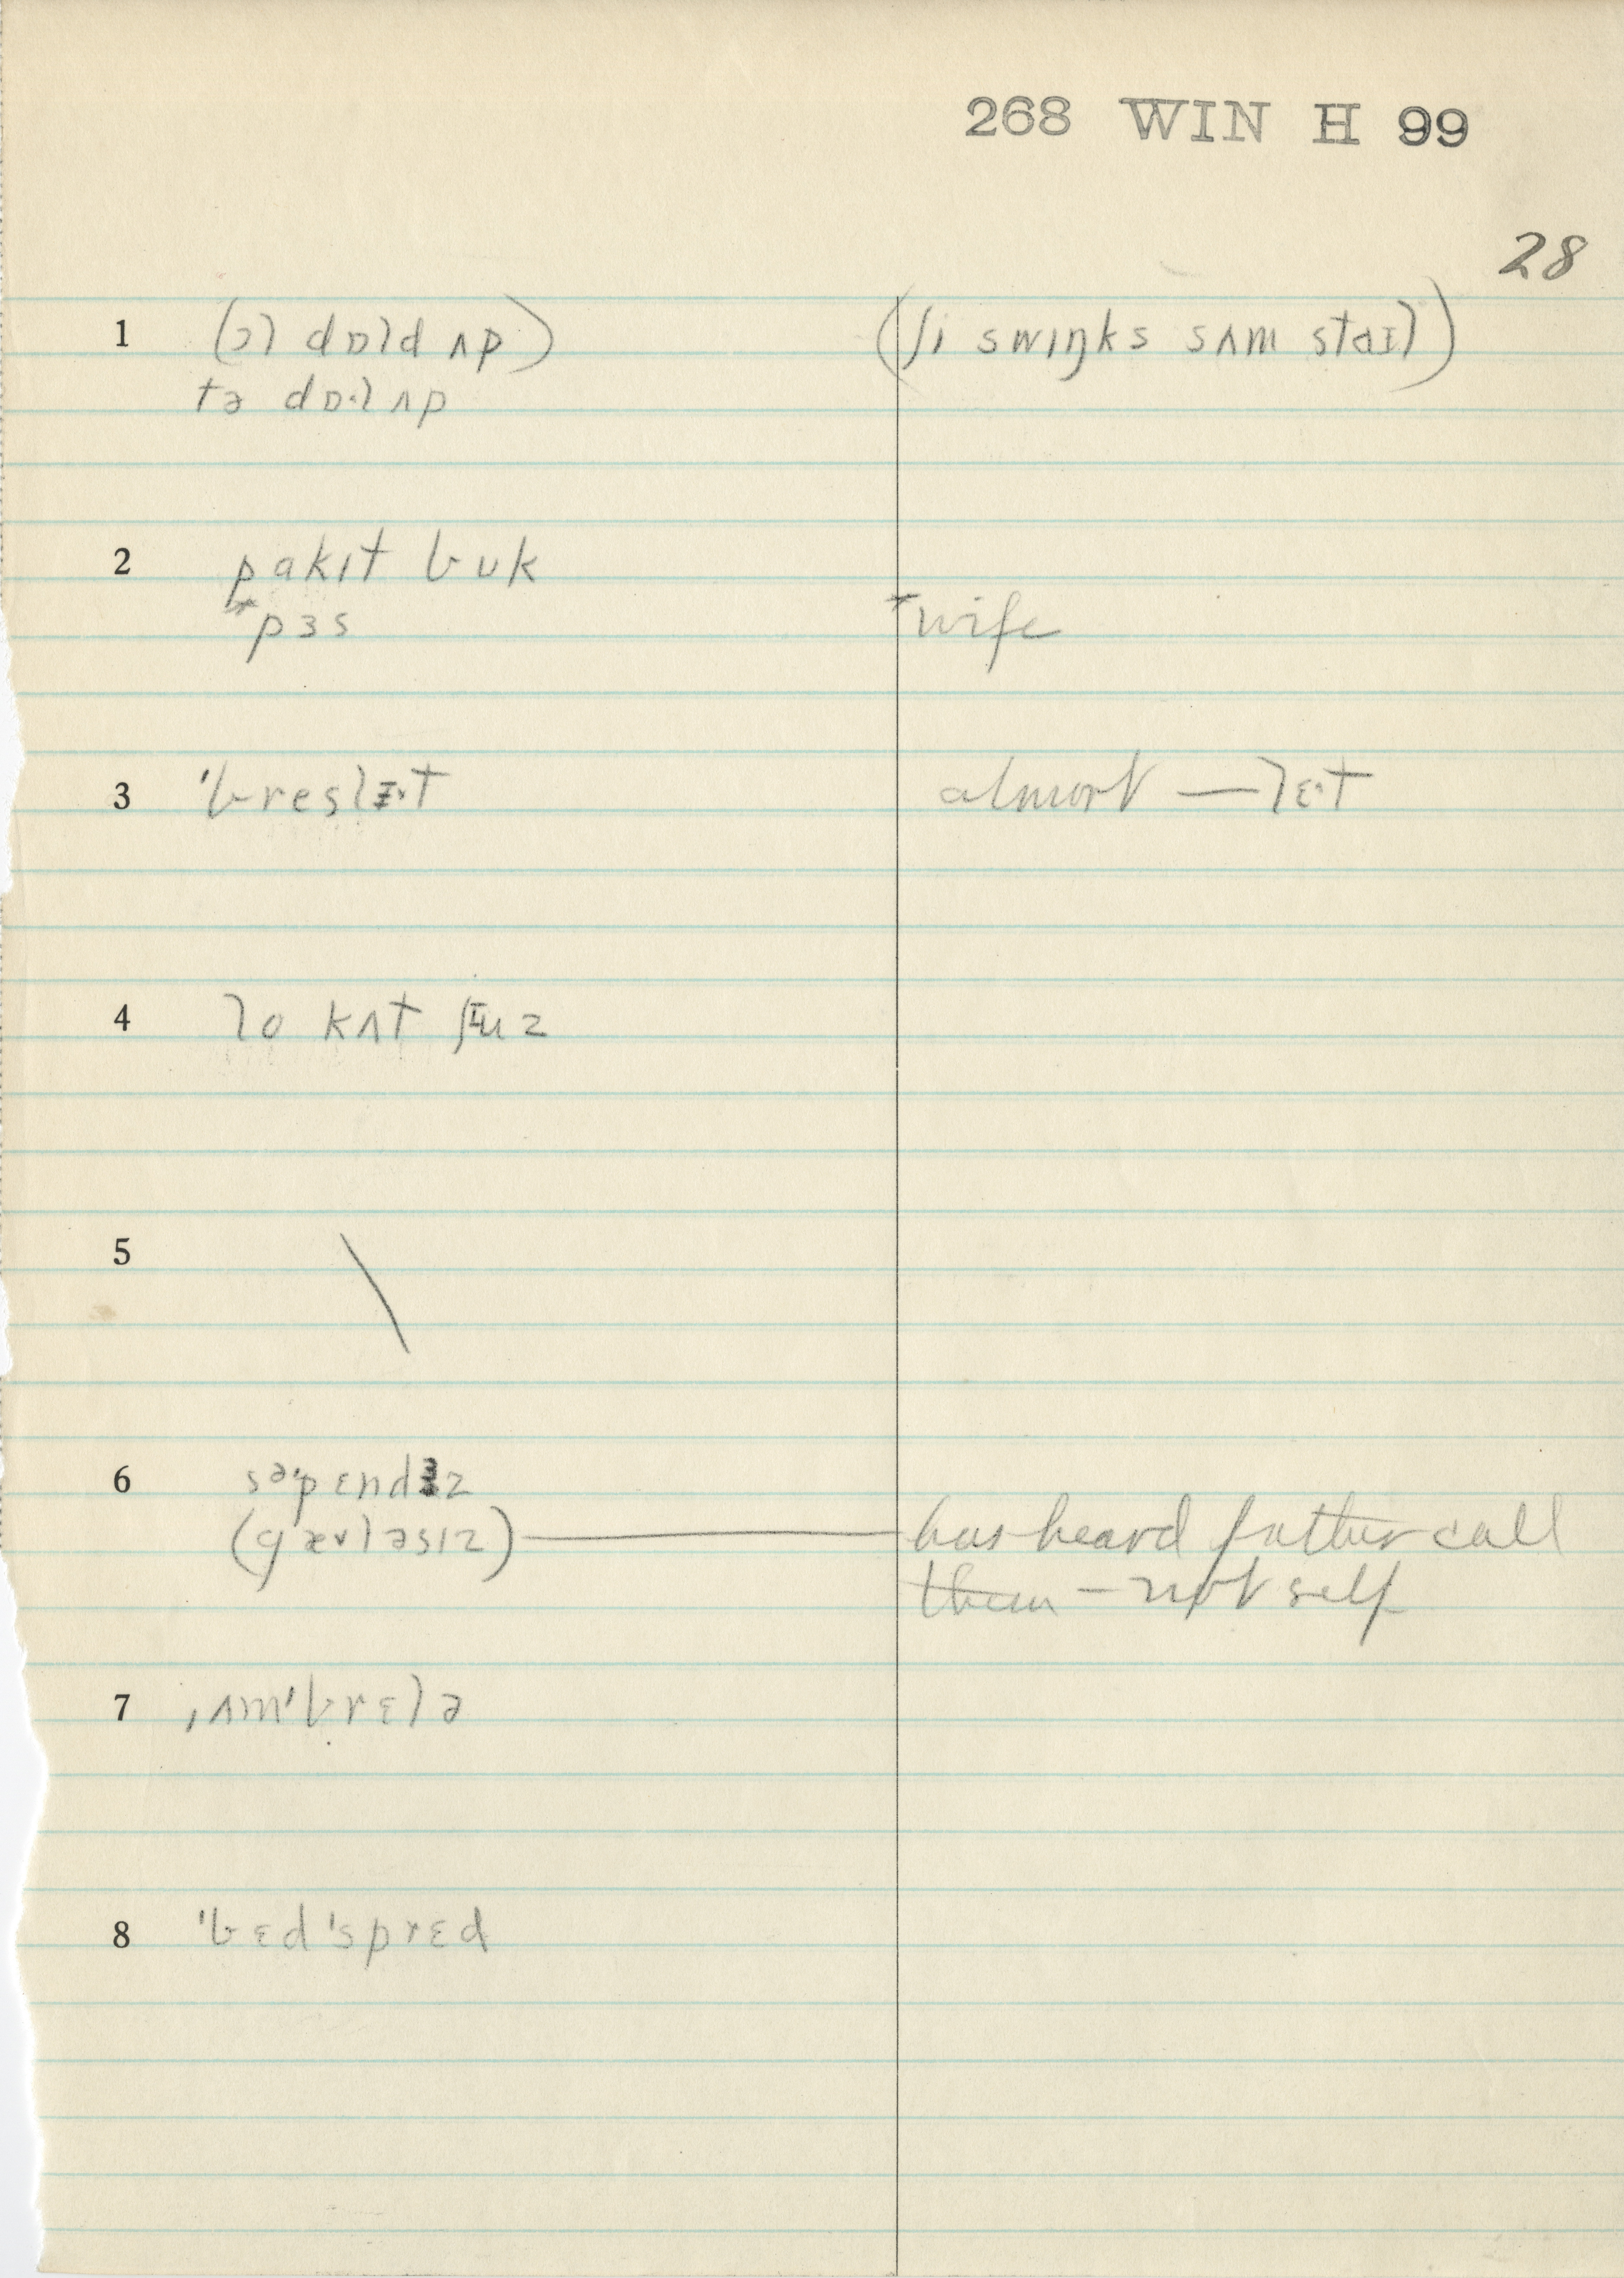 268 WIN H 99
28
1 (ɔl dɒld ʌp) (ʃi swɪŋks sʌm staɪl)
tə dɒ·l ʌp
2 pakɪt buk
*pɜs *wife
3 ˈbreslɪ·t almost — lɛ·t
4 lo kʌt ʃuz
5 \
6 səˈpɛndɜz
(gæləsɪz) — has heard father call
them — not self
7 ˌʌmˈbrɛlə
8 ˈbɛdˈsprɛd